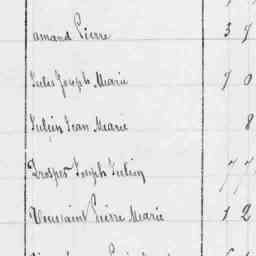 amand Pierre 3 7
Jules Joseph Marie 7 0
Julien Jean Marie 8
Prosper Joseph Julien 7 7
Toussaint Pierre Marie 1 2